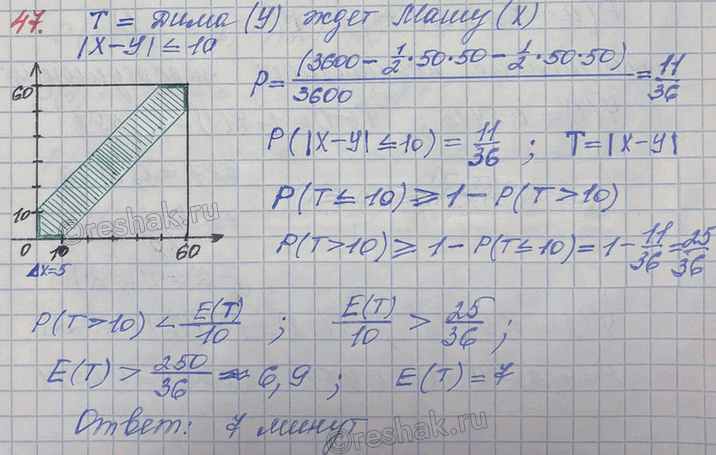 47. T = Дима (У) ждет Машу (X)
|X-У| ≤ 10
P = (3600 - 1/2 · 50 · 50 - 1/2 · 50 · 50) / 3600 = 11/36
P(|X-У| ≤ 10) = 11/36 ; T = |X-У|
P(T ≤ 10) ≥ 1 - P(T > 10)
P(T > 10) ≥ 1 - P(T ≤ 10) = 1 - 11/36 = 25/36
60
10
0 10 60
Δx=5
P(T > 10) < E(T)/10 ; E(T)/10 > 25/36 ;
E(T) > 250/36 ≈ 6,9 ; E(T) = 7
Ответ: 7 минут
©reshak.ru
©reshak.ru